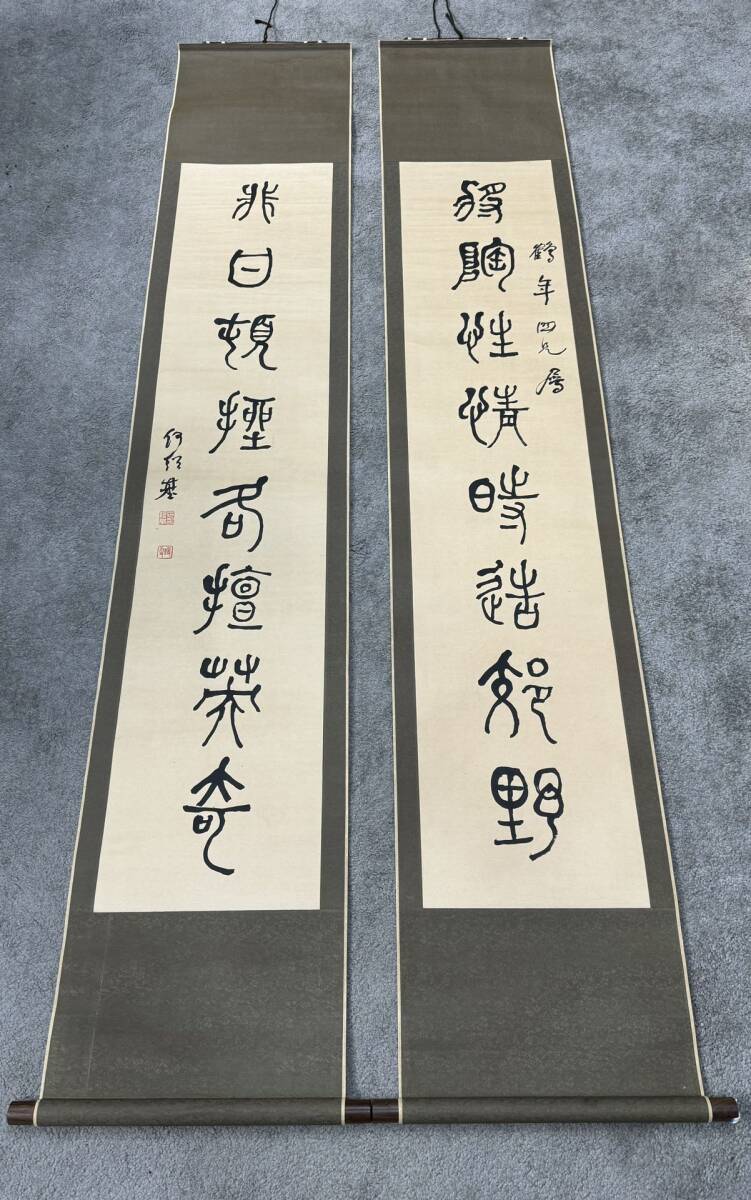 陶性情時造郊野
鶴年四兄屬
非曰頓挫擅英奇
何紹基